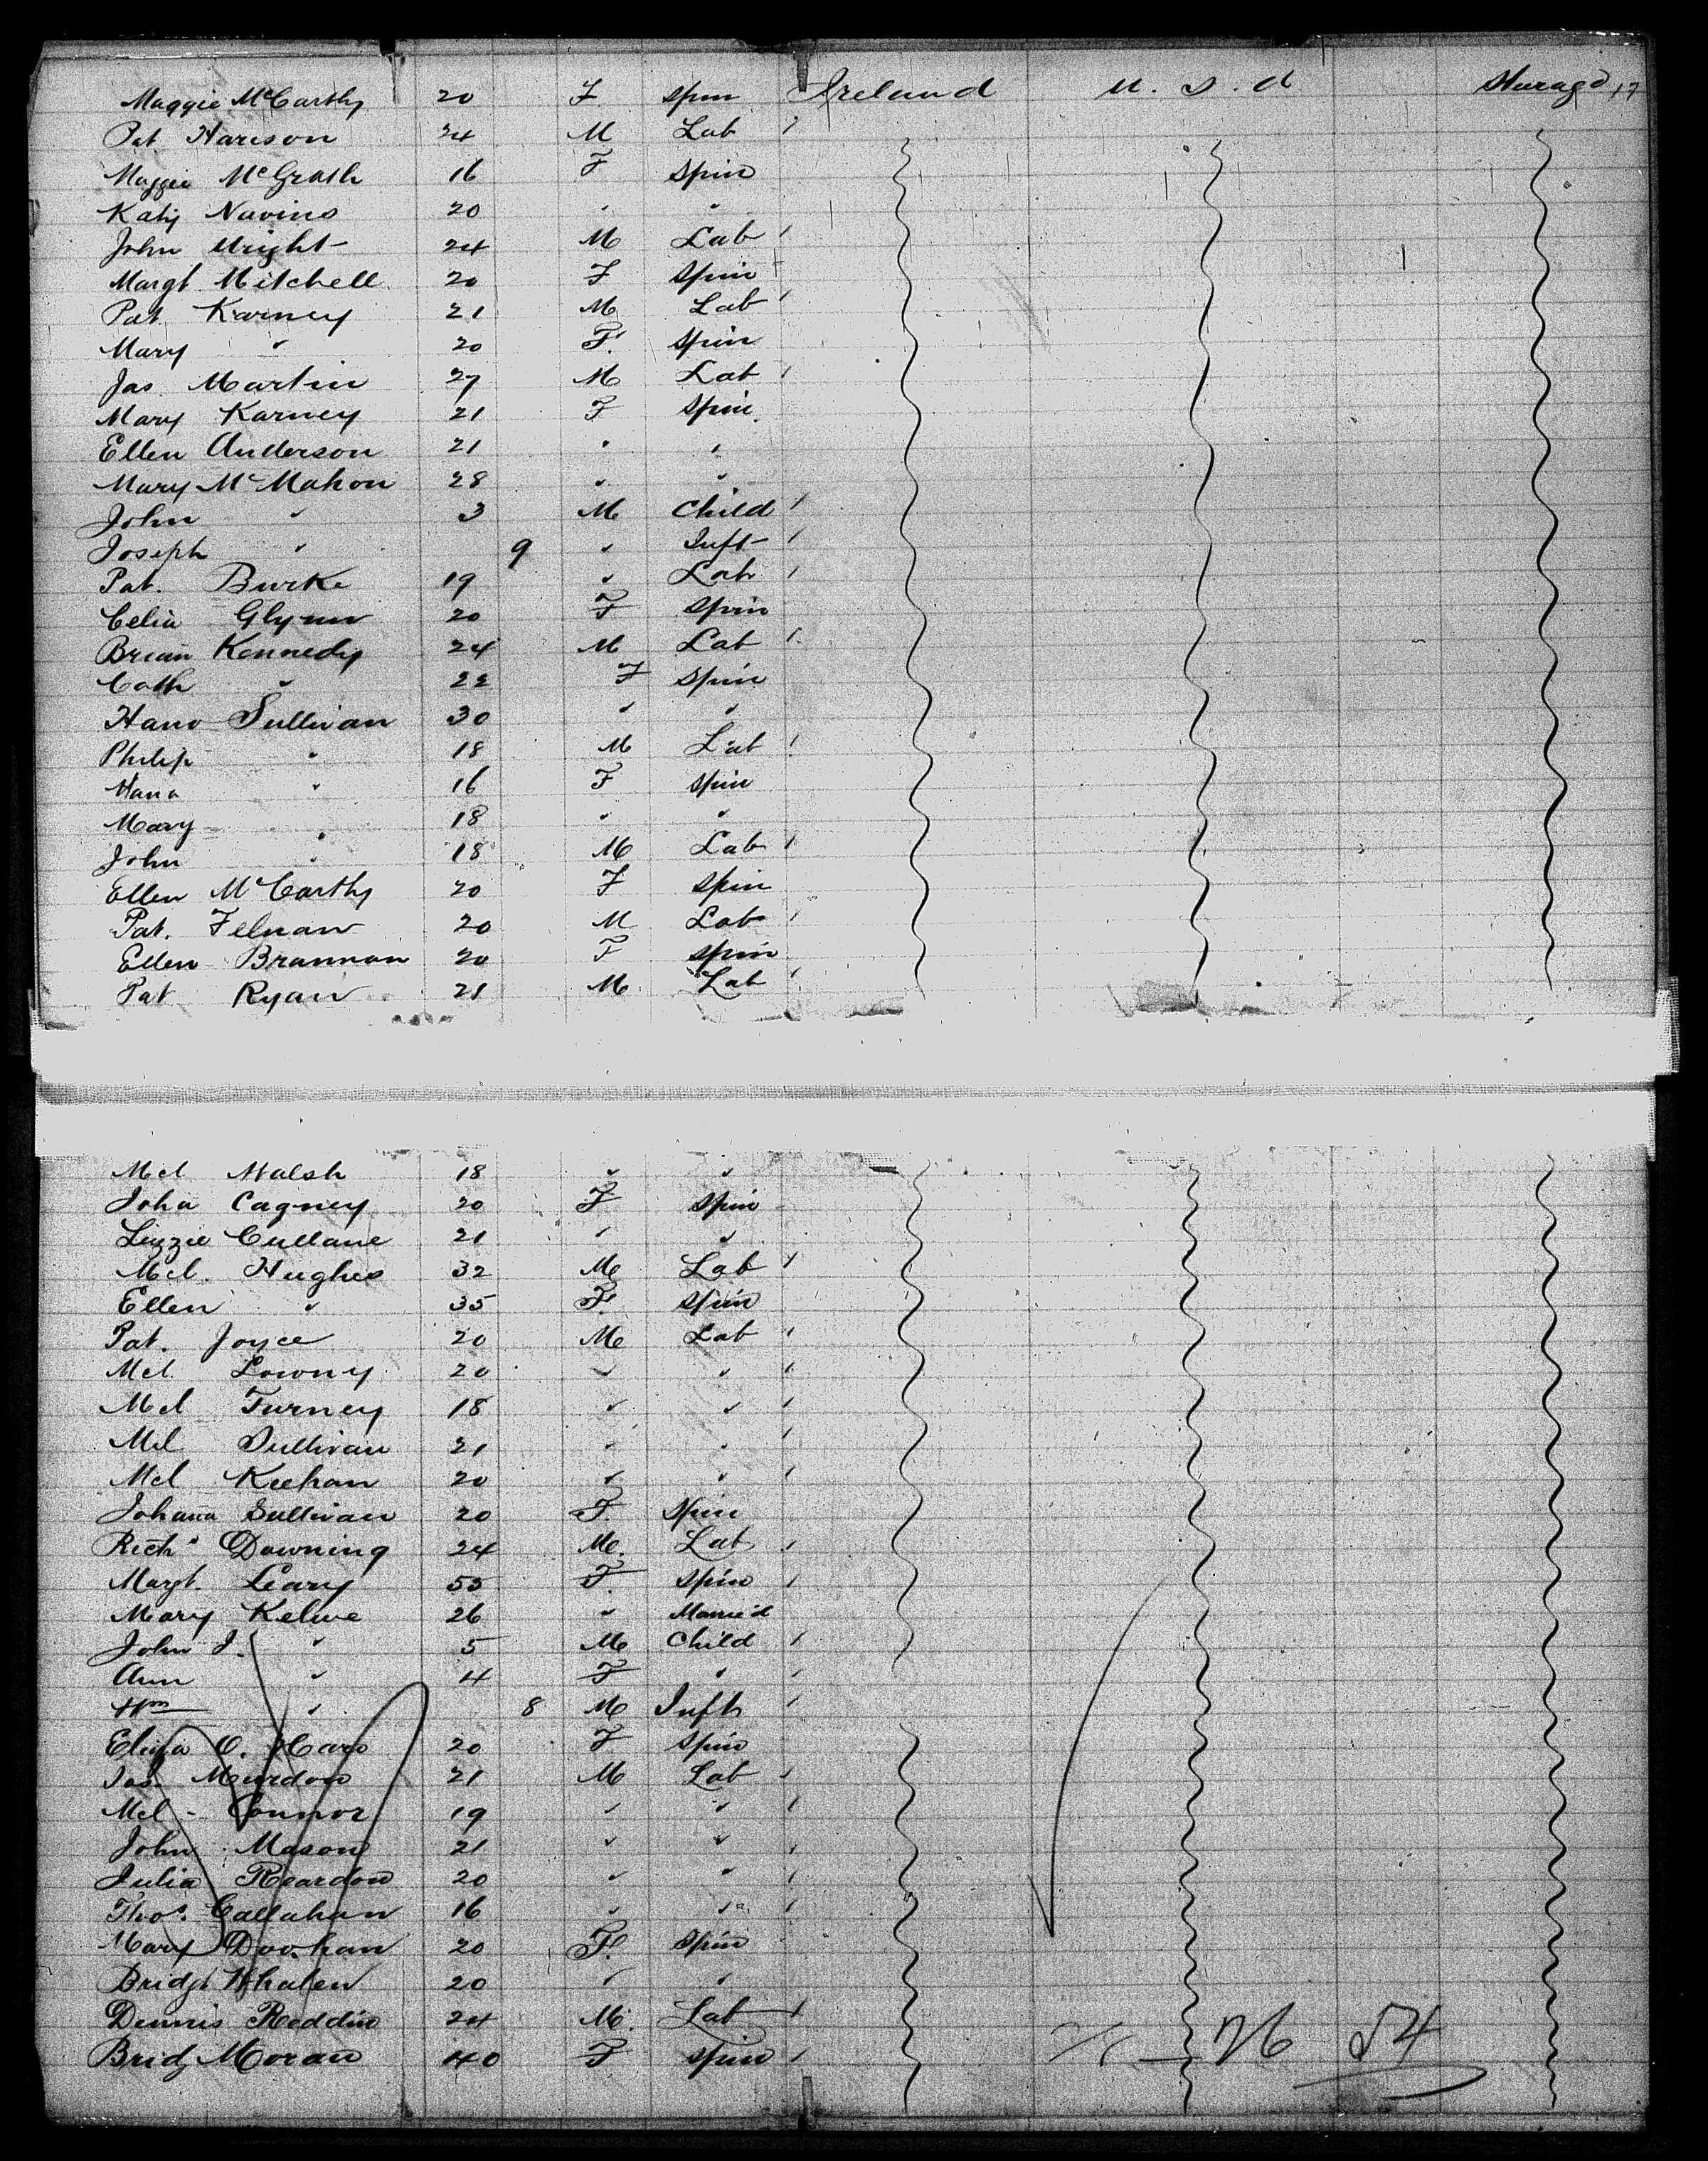 Maggie McCarthy 20 F Spin Ireland U. S. A Steerage 17
Pat Harison 24 M Lab
Maggie McGrath 16 F Spin
Katy Navins 20 " "
John Wright 24 M Lab
Margt Mitchell 20 F Spin
Pat Karney 21 M Lab
Mary " 20 F. Spin
Jas. Martin 27 M Lab
Mary Karney 21 F Spin
Ellen Anderson 21 " "
Mary McMahon 28 " "
John " 3 M Child
Joseph " 9 " Inft
Pat. Burke 19 " Lab
Celia Glynn 20 F Spin
Brian Kennedy 24 M Lab
Cath " 22 F Spin
Hano Sullivan 30 " "
Philip " 18 M Lab
Hana " 16 F Spin
Mary " 18 " "
John " 18 M Lab
Ellen McCarthy 20 F Spin
Pat. 20 M Lab
Ellen Brannan 20 F Spin
Pat Ryan 21 M Lab
Mcl Walsh 18 " "
Joha Cagney 20 F Spin
Lizzie Cullane 21 " "
Mcl. Hughes 32 M Lab
Ellen " 35 F. Spin
Pat. Joyce 20 M Lab
Mcl. Lowny 20 " "
Mcl Furney 18 " "
Mcl Sullivan 21 " "
Mcl Keehan 20 " "
Johana Sullivan 20 F. Spin
Richd Downing 24 M. Lab
Margt. Leary 55 F. Spin
Mary 26 " Married
John J. " 5 M Child
Ann " 4 F "
Wm " 8 M Inft
Eliza O. Hara 20 F Spin
Jas. 21 M Lab
Mcl - Connor 19 " "
John Mason 21 " "
Julia Reardon 20 " "
Thos. Callahan 16 " "
Mary Doohan 20 F. Spin
Bridgt Whalen 20 " "
Dennis Reddin 24 M. Lab
Bridg Moran 40 F Spin 26 54